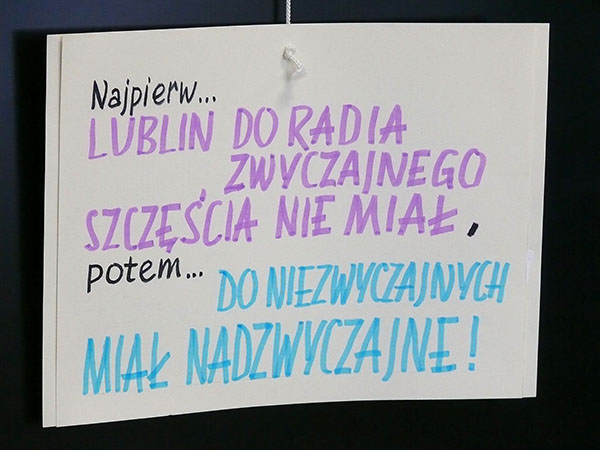 Najpierw...
LUBLIN DO RADIA
ZWYCZAJNEGO
SZCZĘŚCIA NIE MIAŁ,
potem...
DO NIEZWYCZAJNYCH
MIAŁ NADZWYCZAJNE!